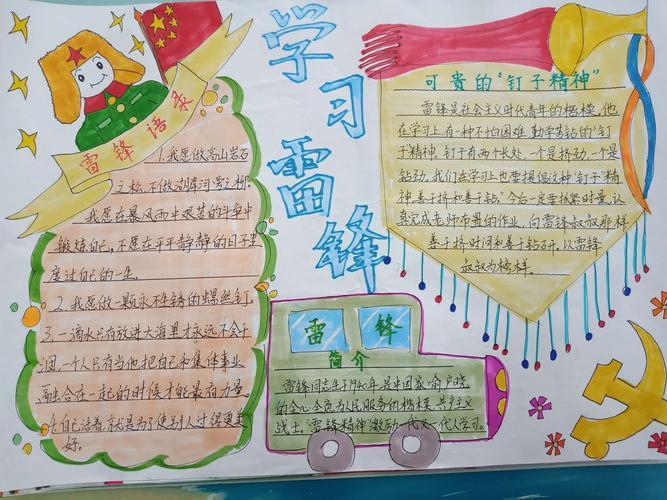 学习雷锋
雷锋语录
1.我愿做高山岩石
之松,不做湖岸河旁之柳。
我愿在暴风雨中艰苦的斗争中
锻炼自己,不愿在平平静静的日子里
度过自己的一生。
2.我愿做一颗永不生锈的螺丝钉。
3.一滴水只有放进大海里才永远不会干
涸,一个人只有当他把自己和集体事业
融合在一起的时候才能最有力量。
自己活着,就是为了使别人过得更美
好。
可贵的"钉子精神"
雷锋是社会主义时代青年的楷模,他
在学习上有一种不怕困难,勤学苦钻的"钉
子"精神,钉子有两个长处,一个是挤劲,一个是
钻劲,我们在学习上也要提倡这种"钉子"精
神,善于挤和善于钻。"今后一定要抓紧时量,认
真完成老师布置的作业,向雷锋叔叔那样
善于挤时间和善于钻研,以雷锋
叔叔为榜样。
雷锋
简介
雷锋同志生于1940年,是中国家喻户晓
的全心全意为人民服务的楷模,共产主义
战士,"雷锋精神"激励一代又一代人学习。